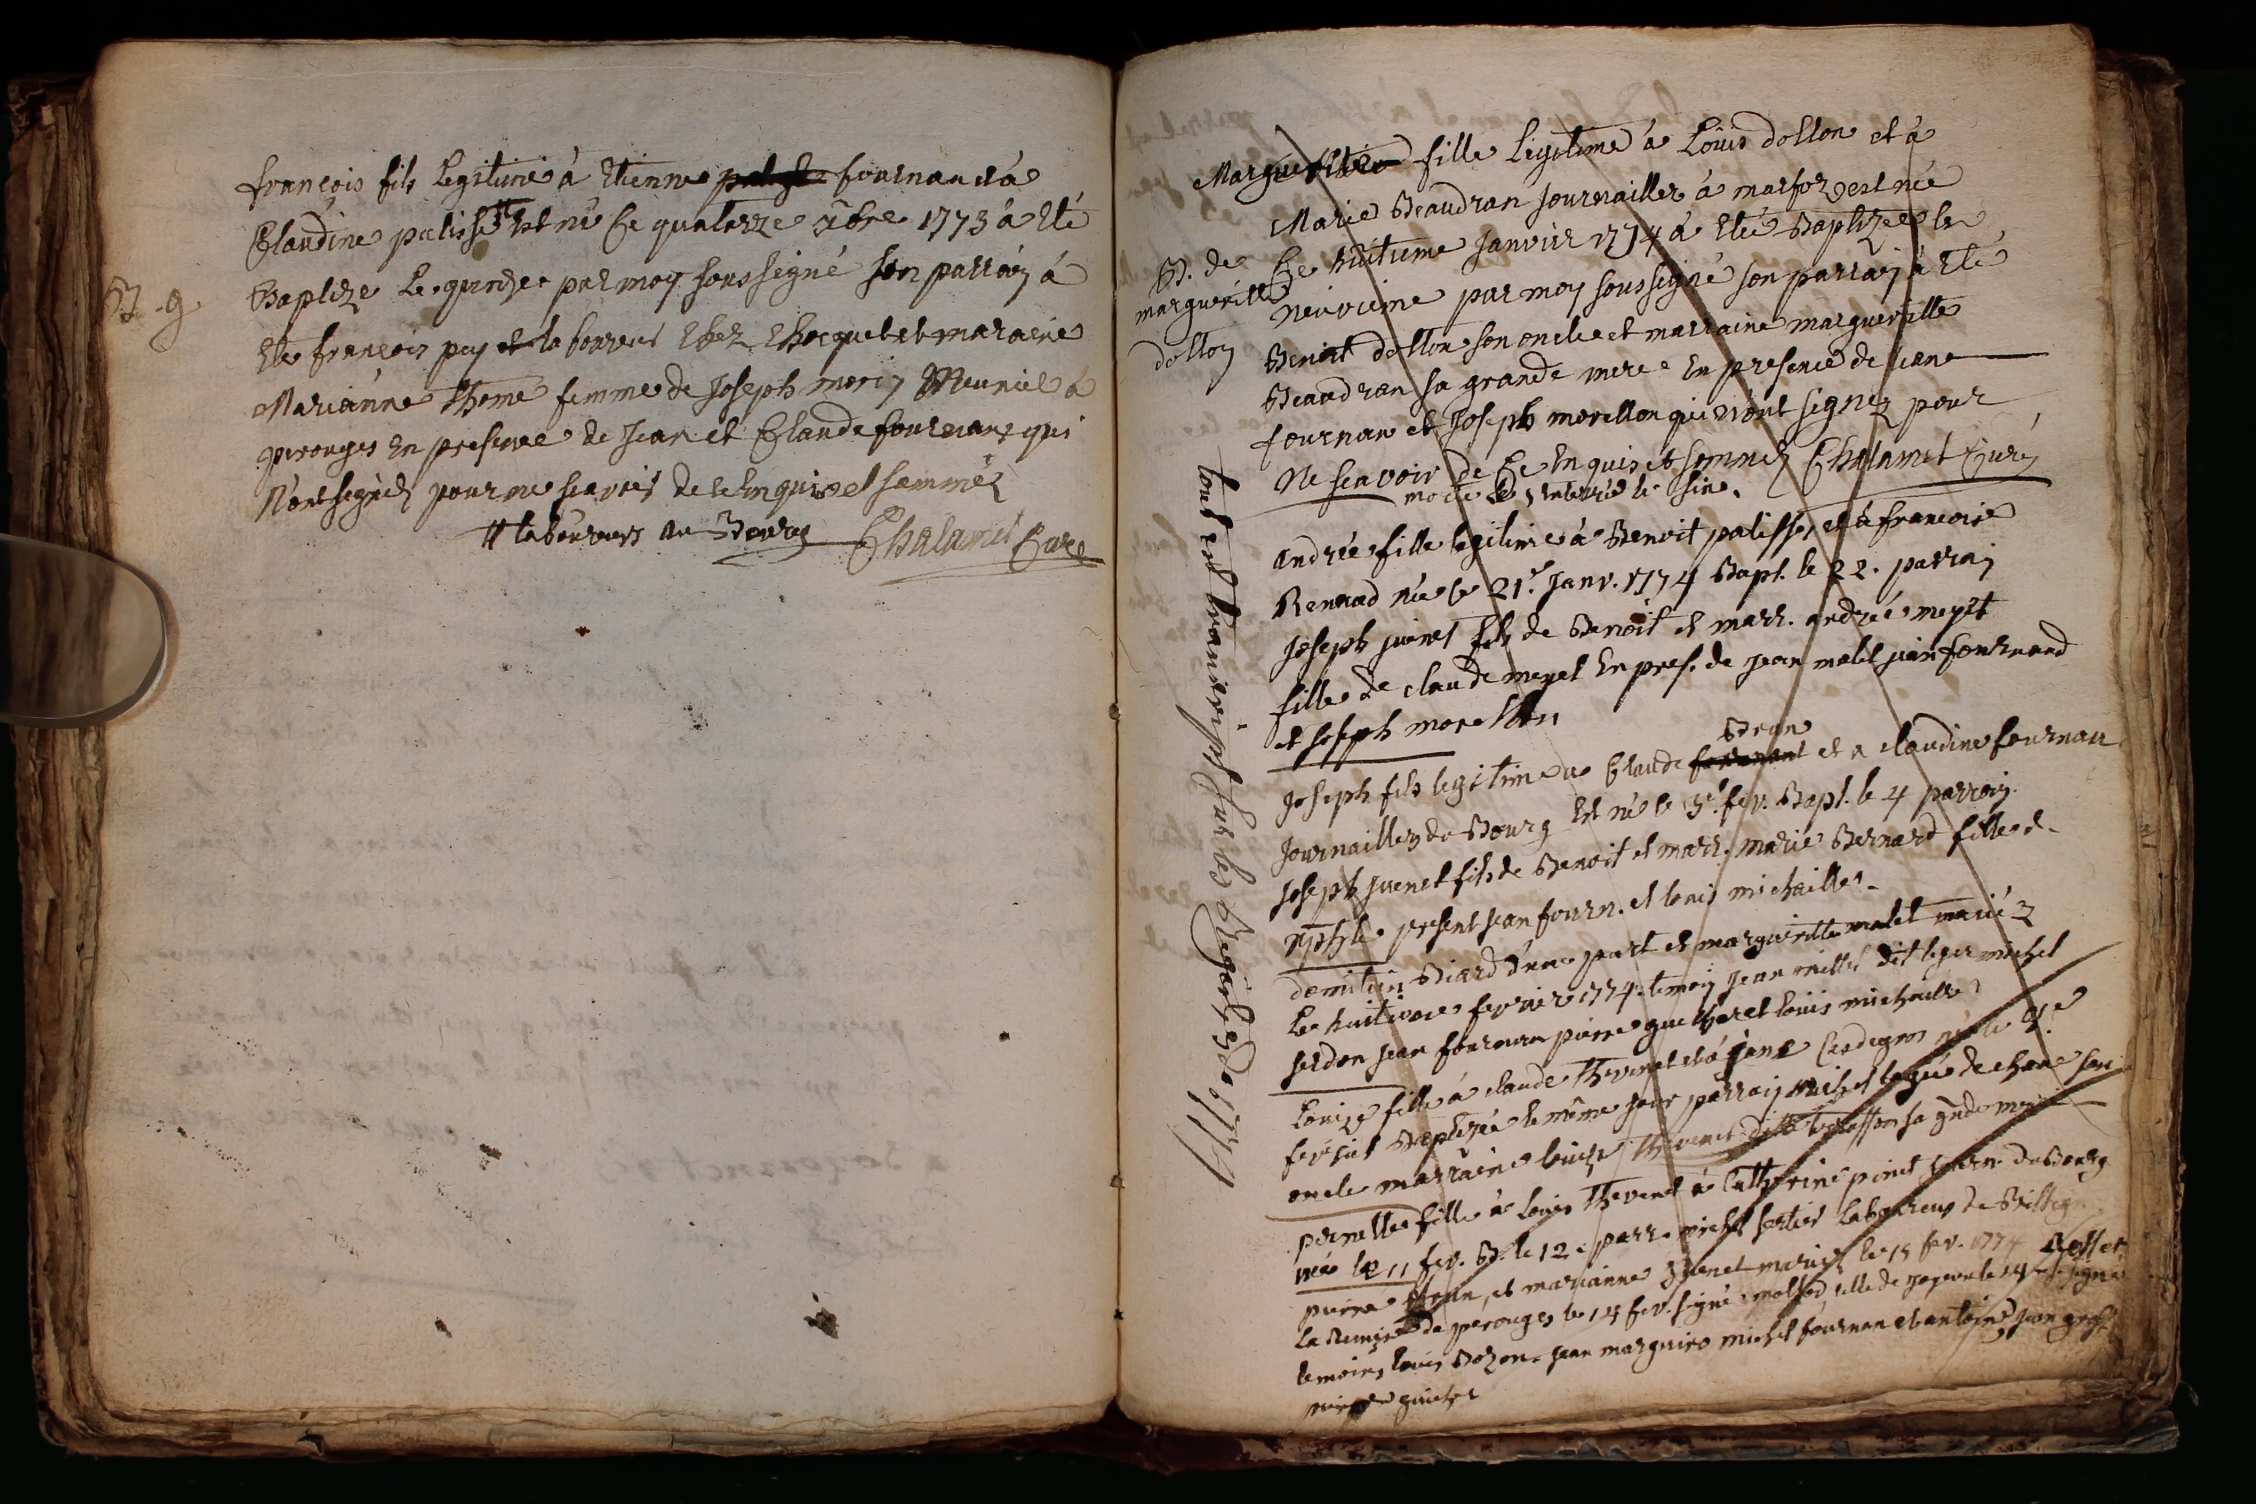 françois fils legitime à Etienne fournan et à
Claudine palisse # Est né Ce quatorze xbre 1773 à Eté
B. g.
Baptize Le quinze par moy sous signé son parrain à
Eté françois puy laboureur chez Chocquet et maraine
Marianne Thomé femme de Joseph morin Meunier à
perouges En presence de Jean et Claude fournan qui
N'ont signéz pour ne scavoir de ce Enquis et sommés
# laboureurs au Bourg Chalamel Curé
Margueritte fille Legitime à Loüis dollon et à
Marie Beaudran Journailler à marfoz est née
B. de marguéritte dollon
Ce huitieme Janvier 1774 à Eté Baptizée le
neuvieme par moy sous signé son parrain à Eté
Benoit dollon son oncle et marraine marguéritte
Beaudran sa grande mere En presence de Jean
fournan et Joseph morellon qui n'ont signez pour
Ne scavoir de Ce Enquis et sommez Chalamel Curé
morte Le 5 Enterrée le sixe.
andrée fille legitime à Benoit palisse et à francoise
Renaud née le 21e. Janv. 1774 Bapt. le 22. parrain
Joseph juenet fils de Benoit et marr. andrée meyet
fille de claude meyet En pres. de Jean malet jean fournand
et Joseph morellon
Brun
Joseph fils legitime a Claude et a claudine fournan
Journailler du Bourg Est né le 3e. fev. Bapt. le 4 parrain.
Joseph Juenet fils de Benoit et marr. marie Bernard fille d-
present Jean fourn. et louis michaille.
Biard d'une part et marguéritte malet mariéz
Le huitieme fevrier 1774. temoin Jean millet dit leger michel
serdon Jean fournan pierre guicher et loüis michaille
Louize fille à claude Thevenet et à Jane née le 9e
fevrier Baptizée le même jour parrain michel de chane son
oncle marraine louize Thevenet ditte sa gnde mere
pernette fille à louis Thevenet à Catherine pinet journ. du Bourg
née le 11 fev. B. le 12. parr. michel laboureur de
pierre Brun, et marianne Juenet mariez le 15 fev. 1774
La Remize de perouges le 14 fev. signé celle de le 14
temoins louis Bozon. Jean marguiro michel fournan et antoine
guicher
tout est transcript sur les Registres de 1774